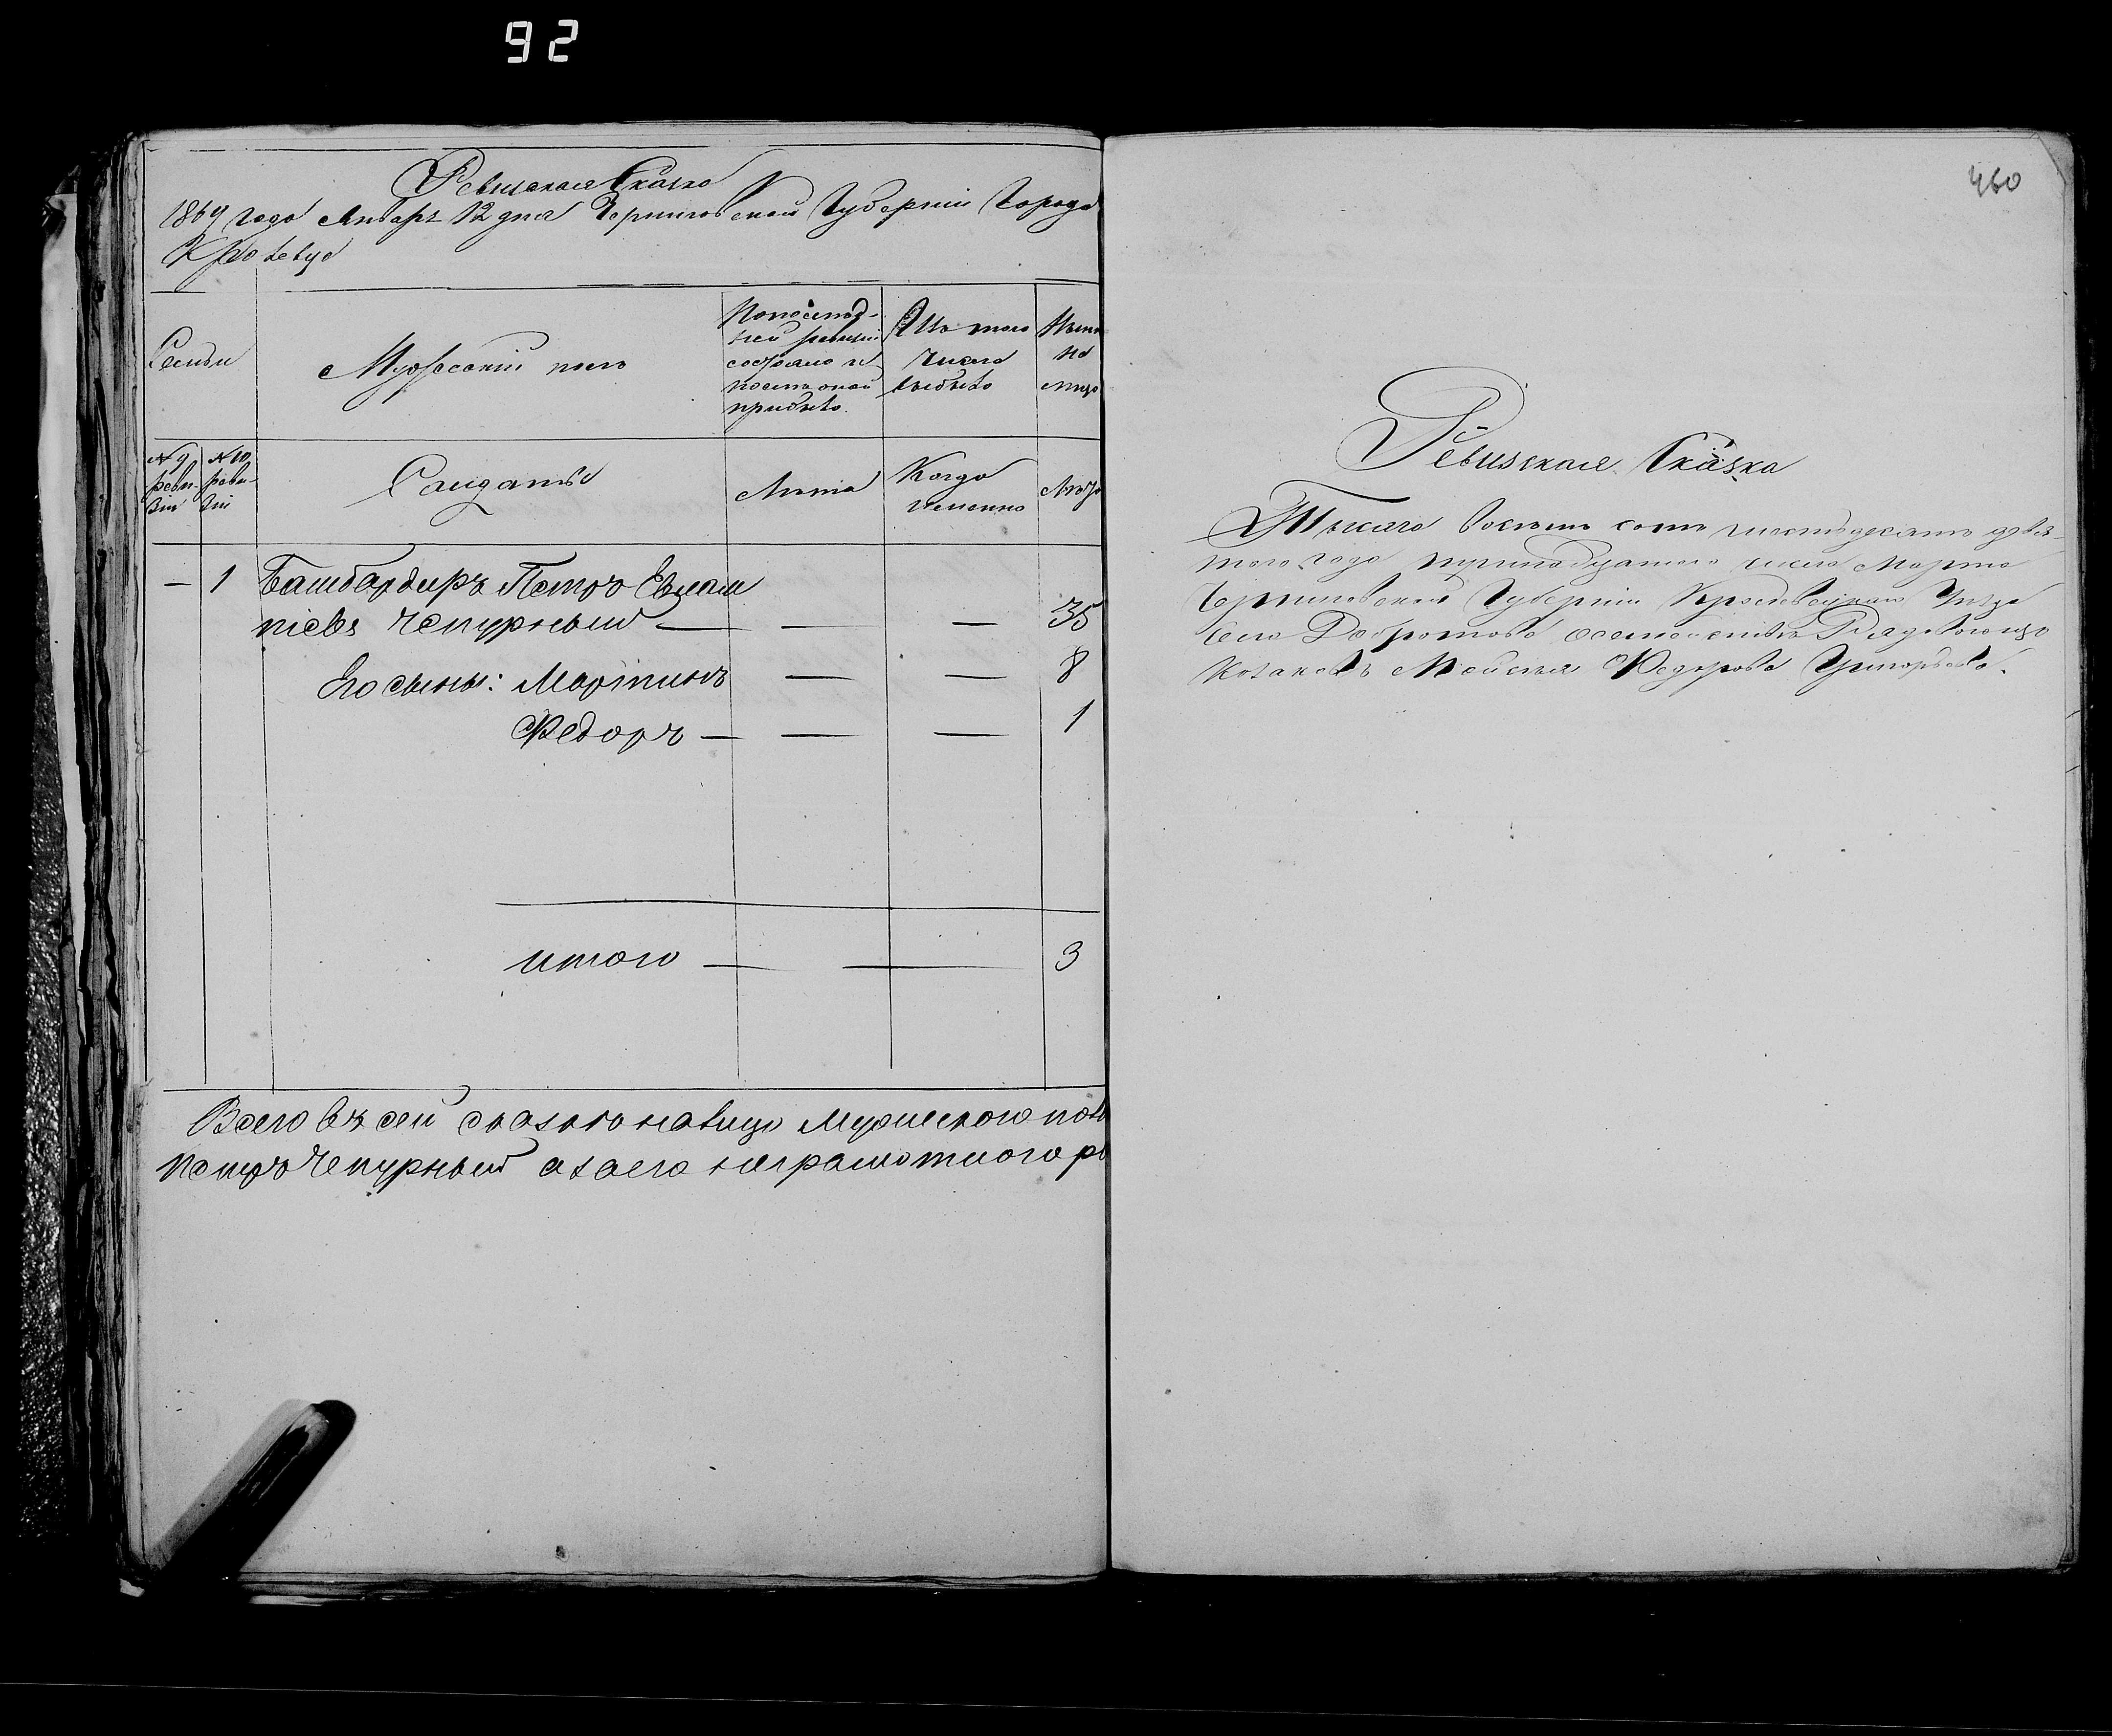 92
Ревизская Сказка
1869 года Январ 12 дня Черниговской Губерніи Города
Кролевца
Семьи
Мужескій полъ
По послед-
ней ревизіи
состояло и
после оной
прибыло.
Изъ того
числа
выбыло
Ныне
на
лицо
№ 9
реви-
зіи
№ 10
реви-
зіи
Солдатъ
Лета
Когда
именно
Лета
— 1 Бамбардиръ Петръ Евлам
піевъ Чепурный — — — 35
Его сыны: Мартинъ — — 8
Федоръ — — — 1
Итого — — 3
Всего въ сей сказке на лицо мужеского пола
Петръ Чепурный а за его неграмотного
460
Ревизская Сказка
Тысяча восемь сотъ шестьдесятъ девя-
того года тринадцатого числа Марта
Черниговской Губерніи Кролевецкаго Уезда
Села Добротова о семействе Рядового изъ
Козаковъ Моисея Федорова